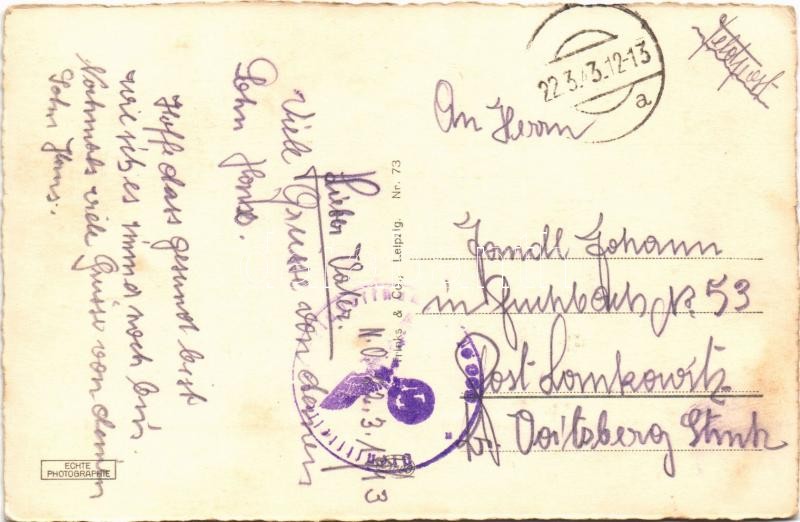 Feldpost
22.3.43.12-13
a
An Herrn
Jandl Johann
in Nr. 53
Post
Bz. Voitsberg
Trinks & Co., Leipzig. Nr. 73
Lieber Vater.
Viele Grüsse von deinem
Sohn Hans.
Hoffe dass gesund bist
wie ich es immer noch bin.
Nochmals viele Grüsse von deinem
Sohn Hans..
ECHTE
PHOTOGRAPHIE